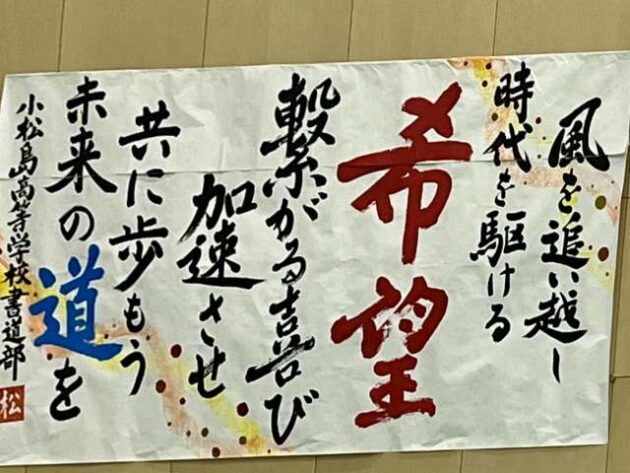 風を追い越し
時代を駆ける
希望
繋がる喜び
加速させ
共に歩もう
未来の道を
小松島高等学校書道部
松